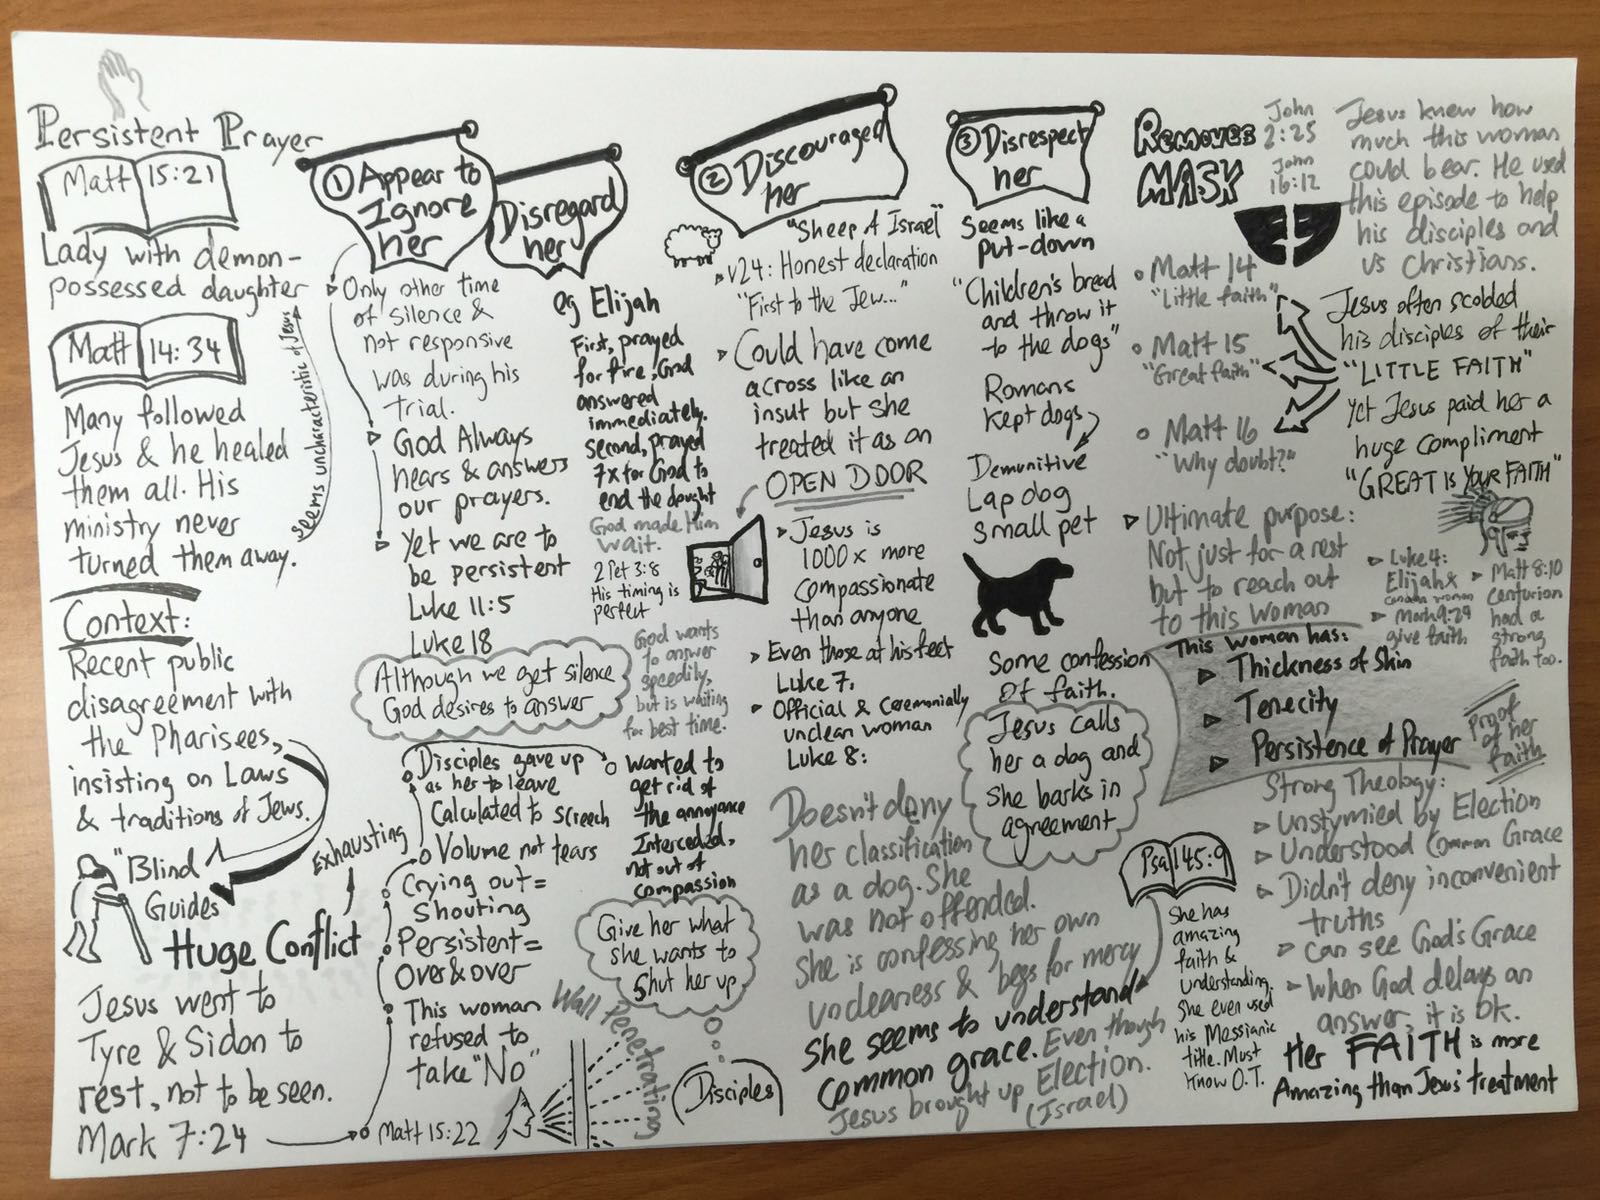 Persistent Prayer
Matt 15:21
Lady with demon-
possessed daughter
Matt 14:34
Many followed
Jesus & he healed
them all. His
ministry never
turned them away.
seems uncharacteristic of Jesus
Context:
Recent public
disagreement with
the Pharisees,
insisting on Laws
& traditions of Jews.
"Blind
Guides"
Huge Conflict
Exhausting
Jesus went to
Tyre & Sidon to
rest, not to be seen.
Mark 7:24
① Appear to
Ignore
her
Disregard
her
Only other time
of silence &
not responsive
was during his
trial.
God Always
hears & answers
our prayers.
Yet we are to
be persistent
Luke 11:5
Luke 18
eg Elijah
First, prayed
for fire, God
answered
immediately.
second, prayed
7x for God to
end the dought
God made Him
wait.
2 Pet 3:8
His timing is
perfect
Although we get silence
God desires to answer
God wants
to answer
speedily,
but is waiting
for best time.
Disciples gave up
as her to leave
Calculated to screech
Volume not tears
Crying out=
Shouting
Persistent=
Over & over
This woman
refused to
take "No"
Matt 15:22
Wanted to
get rid of
the annoyance
Interceded,
not out of
compassion
Give her what
she wants to
shut her up
Disciples
Wall Penetrating
② Discouraged
her
"Sheep of Israel"
v24: Honest declaration
"First to the Jew..."
Could have come
across like an
insult but she
treated it as an
OPEN DOOR
Jesus is
1000x more
compassionate
than anyone
Even those at his feet
Luke 7:
Official & Ceremonially
unclean woman
Luke 8:
Doesn't deny
her classification
as a dog. She
was not offended.
She is confessing her own
uncleaness & begs for mercy
She seems to understand
common grace. Even though
Jesus brought up Election.
(Israel)
③ Disrespect
her
Seems like a
put-down
"Children's bread
and throw it
to the dogs"
Romans
kept dogs
Demunitive
Lap dog
small pet
Some confession
of faith.
Jesus calls
her a dog and
she barks in
agreement
Psa 145:9
She has
amazing
faith &
understanding.
She even used
his Messianic
title. Must
know O.T.
Removes
MASK
John
2:25
John
16:12
Jesus knew how
much this woman
could bear. He used
this episode to help
his disciples and
us Christians.
Matt 14
"Little faith"
Matt 15
"Great faith"
Matt 16
"Why doubt?"
Jesus often scolded
his disciples of their
"LITTLE FAITH"
yet Jesus paid her a
huge compliment
"GREAT IS YOUR FAITH"
Ultimate purpose:
Not just for a rest
but to reach out
to this woman
Luke 4:
Elijah &
woman
Mark 9:24
give faith
Matt 8:10
centurion
had a
strong
faith too.
This woman has:
Thickness of Skin
Tenecity
Persistence of Prayer
Proof
of her
faith
Strong Theology:
Unstymied by Election
Understood Common Grace
Didn't deny inconvenient
truths
Can see God's Grace
When God delays an
answer, it is ok.
Her FAITH is more
Amazing than Jesus' treatment